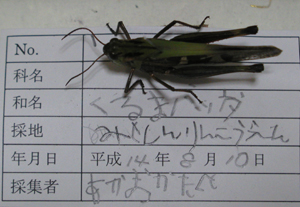 No.
科名
和名 くるまバッタ
採地 みど(しんりんこうえん
年月日 平成 14 年 8 月 10 日
採集者